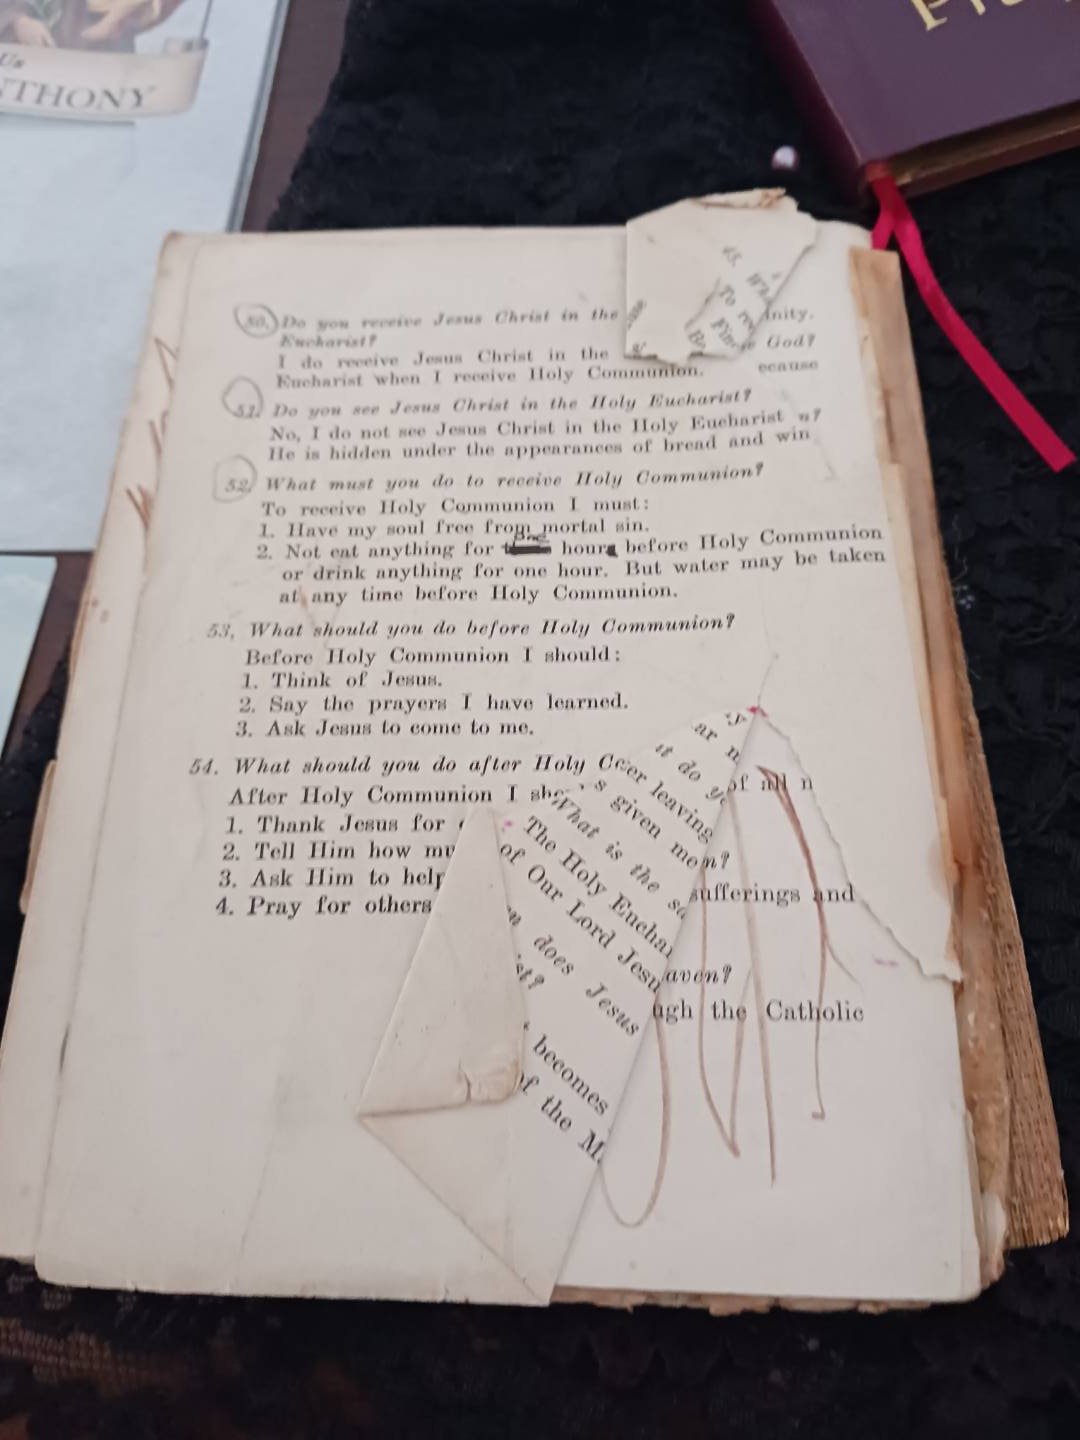 Us
THONY
50. Do you receive Jesus Christ in the
Eucharist?
I do receive Jesus Christ in the
Eucharist when I receive Holy Communion.
51. Do you see Jesus Christ in the Holy Eucharist?
No, I do not see Jesus Christ in the Holy Eucharist
He is hidden under the appearances of bread and win
52. What must you do to receive Holy Communion?
To receive Holy Communion I must:
1. Have my soul free from mortal sin.
one
2. Not eat anything for hour before Holy Communion
or drink anything for one hour. But water may be taken
at any time before Holy Communion.
53. What should you do before Holy Communion?
Before Holy Communion I should:
1. Think of Jesus.
2. Say the prayers I have learned.
3. Ask Jesus to come to me.
54. What should you do after Holy C
After Holy Communion I sh
1. Thank Jesus for
2. Tell Him how mu
3. Ask Him to help
4. Pray for others
45. Wh
To re
inity.
God?
ecause
n?
ar n
it do y
er leaving
s given men?
What is the sa
The Holy Euchar
of Our Lord Jesu
does Jesus
ist?
becomes
of the M
of all n
sufferings and
aven?
ugh the Catholic